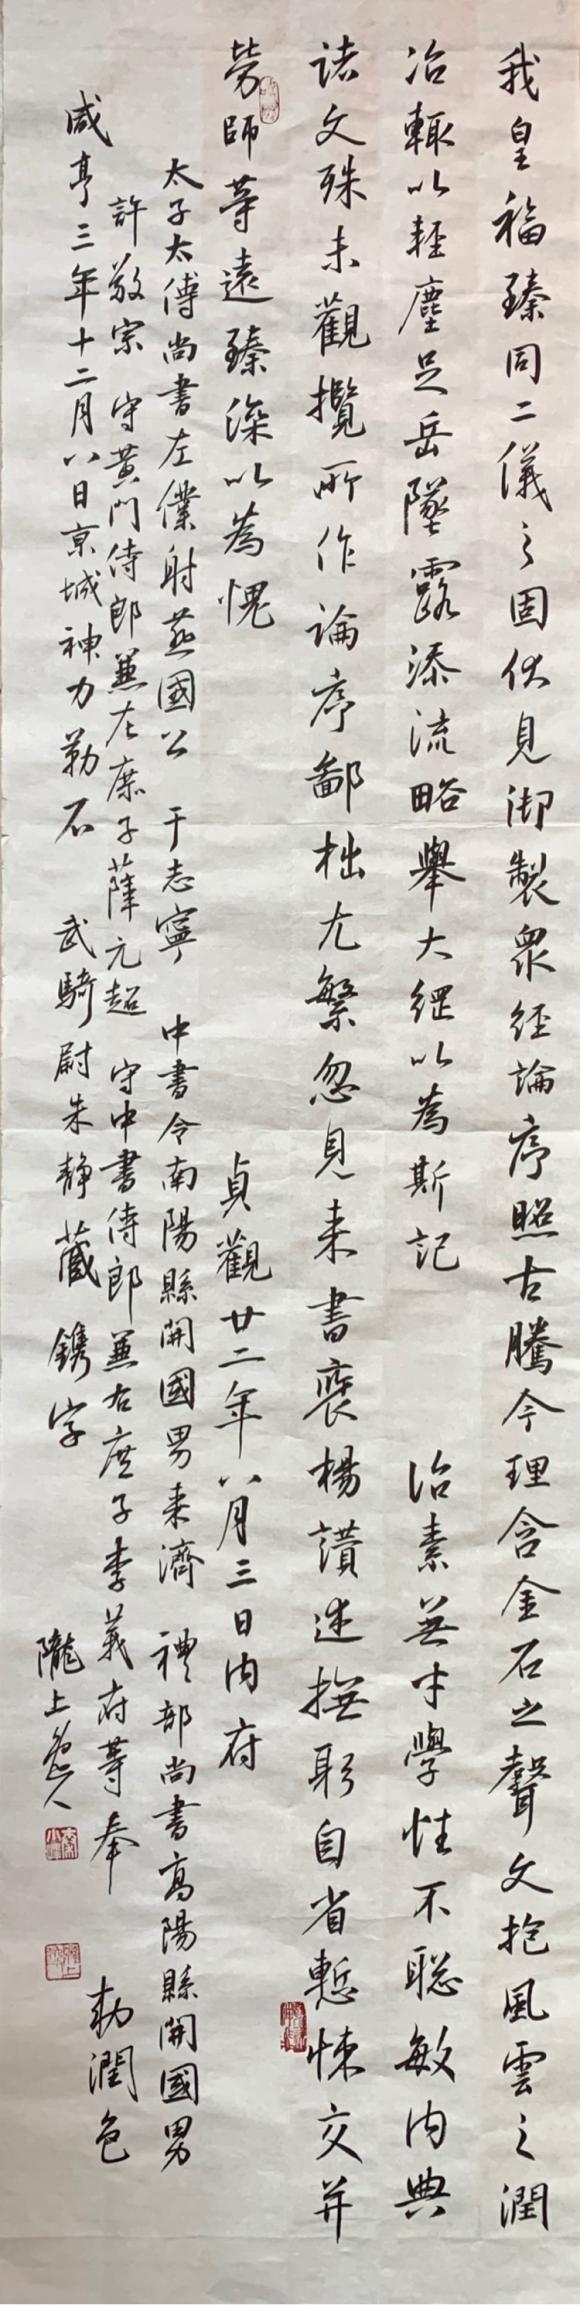 我皇福臻同二儀之固伏見御製衆經論序照古騰今理含金石之聲文抱風雲之潤
治輙以輕塵足岳墜露添流略舉大綱以為斯記 治素無才學性不聡敏内典
諸文殊未觀攬所作論序鄙拙尤繁忽見来書褒楊讃述撫躬自省慙悚交并
勞師等遠臻深以為愧 貞觀廿二年八月三日内府
太子太傅尚書左僕射燕國公 于志寧 中書令南陽縣開國男来濟 禮部尚書高陽縣開國男
許敬宗 守黄門侍郎兼左庶子薛元超 守中書侍郎兼右庶子李義府等奉 勑潤色
咸亨三年十二月八日京城神力勒石 武騎尉朱静藏鐫字
隴上